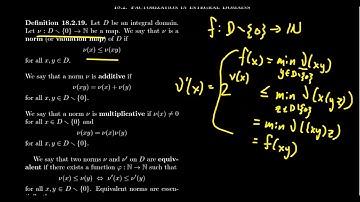 18.2. FACTORIZATION IN INTEGRAL DOMAINS
Definition 18.2.19. Let D be an integral domain.
Let ν : D ∖ {0} → ℕ be a map. We say that ν is a
norm (or valuation map) of D if
ν(x) ≤ ν(xy)
for all x, y ∈ D.
We say that a norm ν is additive if
ν(xy) = ν(x) + ν(y)
for all x, y ∈ D ∖ {0}.
We say that a norm ν is multiplicative if ν(x) ≠ 0
for all x ∈ D ∖ {0} and
ν(xy) = ν(x)ν(y)
for all x, y ∈ D ∖ {0}.
We say that two norms ν and ν' on D are equiv-
alent if there exists a function φ : ℕ → ℕ such that
ν(x) ≤ ν(y) ⇔ ν'(x) ≤ ν'(y)
for all x, y ∈ D ∖ {0}. Equivalent norms are essen-
f : D∖{0} → ℕ
f(x) = min ν(xy)
y∈D∖{0}
ν'(x) = 2^ν(x)
≤ min ν(x(yz))
z∈D∖{0}
= min ν((xy)z)
= f(xy)